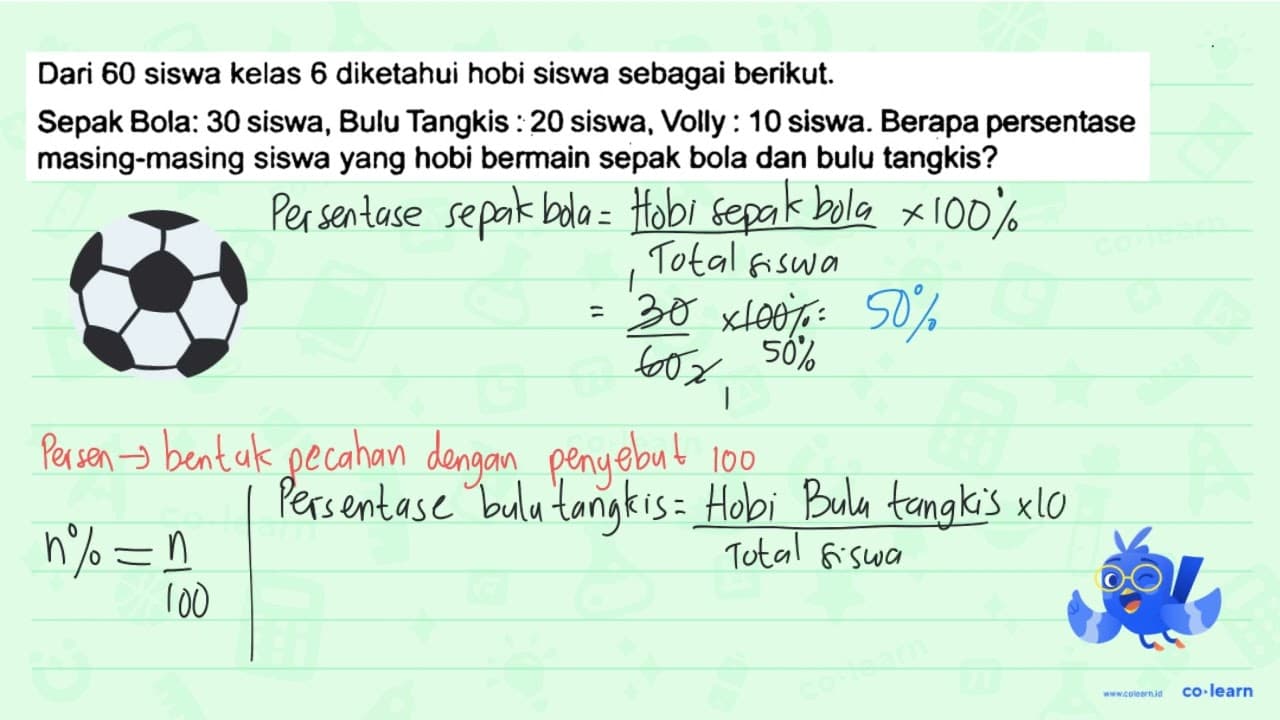 Dari 60 siswa kelas 6 diketahui hobi siswa sebagai berikut.
Sepak Bola: 30 siswa, Bulu Tangkis : 20 siswa, Volly : 10 siswa. Berapa persentase
masing-masing siswa yang hobi bermain sepak bola dan bulu tangkis?
Persentase sepak bola = Hobi sepak bola × 100%
Total siswa
1
= 30 × 100% = 50%
60 2 50%
1
Persen → bentuk pecahan dengan penyebut 100
Persentase bulu tangkis = Hobi Bulu tangkis × 10
Total siswa
n% = n
100
www.colearn.id co·learn